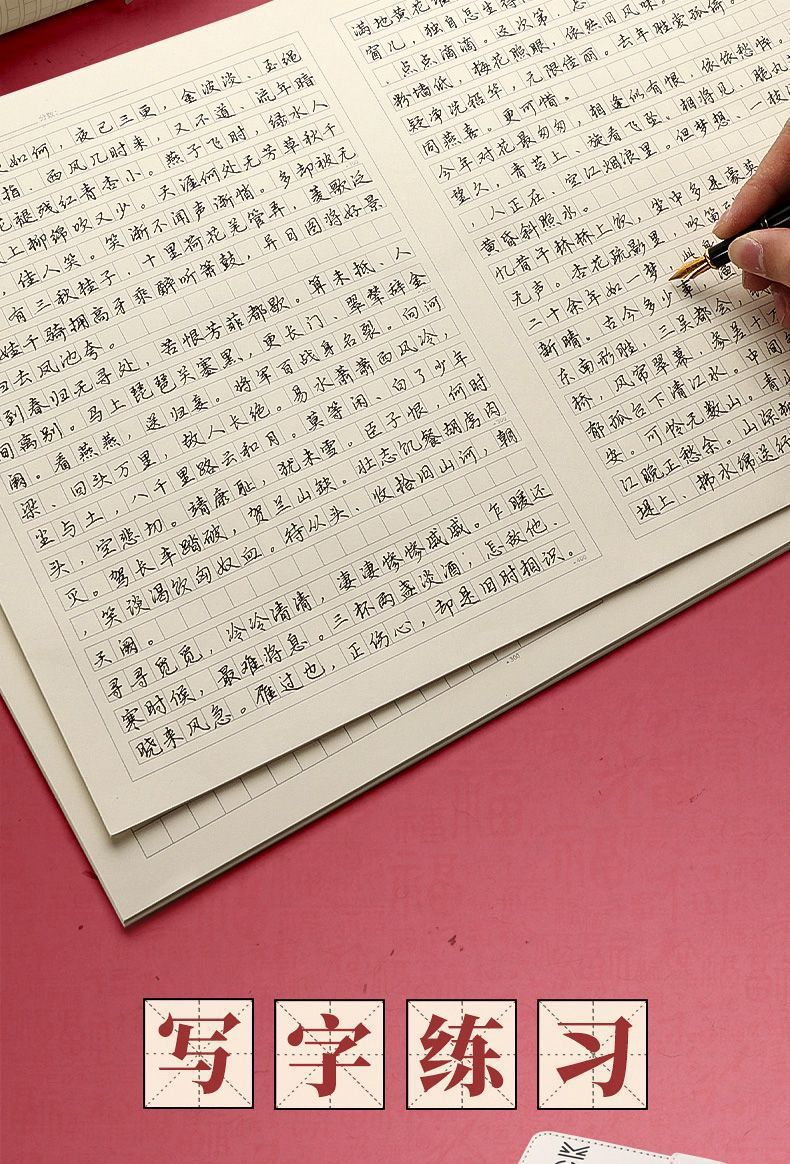 如何，夜已三更，金波淡、玉绳
指、西风几时来，又不道、流年暗
花褪残红青杏小。燕子飞时，绿水人
上柳绵吹又少。天涯何处无芳草秋千
，佳人笑。笑渐不闻声渐悄。多却被无
有三秋桂子，十里荷花羌管弄，菱歌泛
娃千骑拥高牙乘醉听箫鼓，异日图将好景
归去凤池夸。
到春归无寻处，苦恨芳菲都歇。算未抵、人
间离别。马上琵琶关塞黑，更长门、翠辇辞金
阙。看燕燕，送归妾。将军百战身名裂。向河
梁、回头万里，故人长绝。易水萧萧西风冷，
尘与土，八千里路云和月。莫等闲、白了少年
头，空悲切。靖康耻，犹未雪。臣子恨，何时
灭。驾长车踏破，贺兰山缺。壮志饥餐胡虏肉
，笑谈渴饮匈奴血。待从头、收拾旧山河，朝
天阙。
寻寻觅觅，冷冷清清，凄凄惨惨戚戚。乍暖还
寒时候，最难将息。三杯两盏淡酒，怎敌他、
晓来风急。雁过也，正伤心，却是旧时相识。
满地黄花
窗儿，独自怎生得
、点点滴滴。这次第，怎
粉墙低，梅花照眼，依然旧风味。
疑净洗铅华，无限佳丽。去年胜赏孤倚。
同燕喜。更可惜。
今年对花最匆匆，相逢似有恨，依依愁悴。
望久，青苔上、旋看飞坠。相将见、脆丸
，人正在、空江烟浪里。但梦想、一枝
黄昏斜照水。
忆昔午桥桥上饮，坐中多是豪英
无声。杏花疏影里，吹笛
二十余年如一梦，此身
新晴。古今多少事，渔
东南形胜，三吴都会，
桥，风帘翠幕，参差十万
郁孤台下清江水。中间
安。可怜无数山。青山
江晚正愁余。山深
堤上、拂水绵送行
写字练习